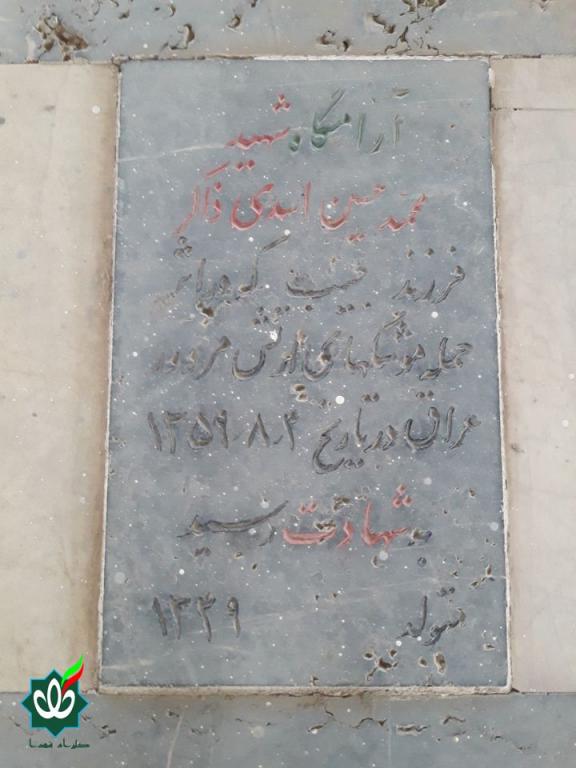 آرامگاه شهید
محمد حسین اسدی ذاکر
فرزند حبیب که در اثر
حمله موشکهای ارتش مزدور
عراق در تاریخ ۱۳۵۹٫۸٫۴
به شهادت رسید
متولد ۱۳۴۹
گلزار شهدا